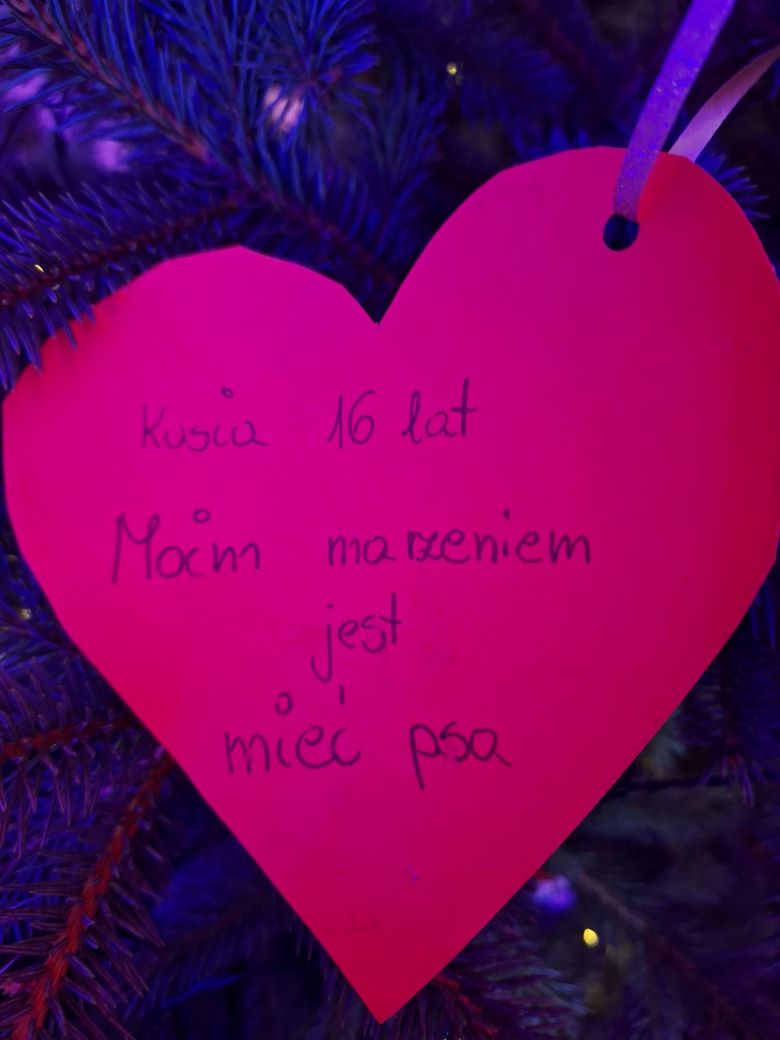 Kusia 16 lat
Moim marzeniem
jest
mieć psa